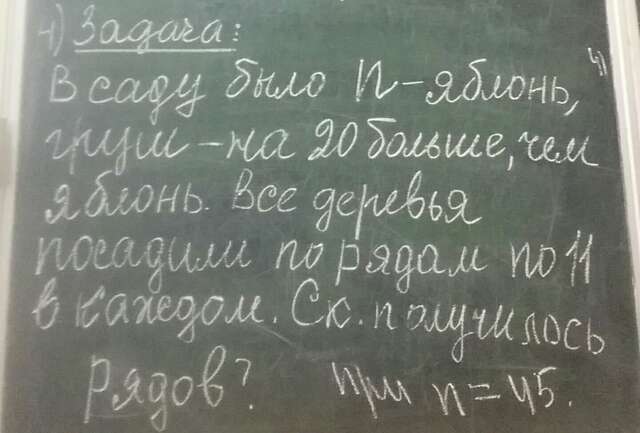 4) Задача:
В саду было n-яблонь,
груш-на 20 больше, чем
яблонь. Все деревья
посадили по рядам по 11
в каждом. Ск. получилось
рядов? при n=45.